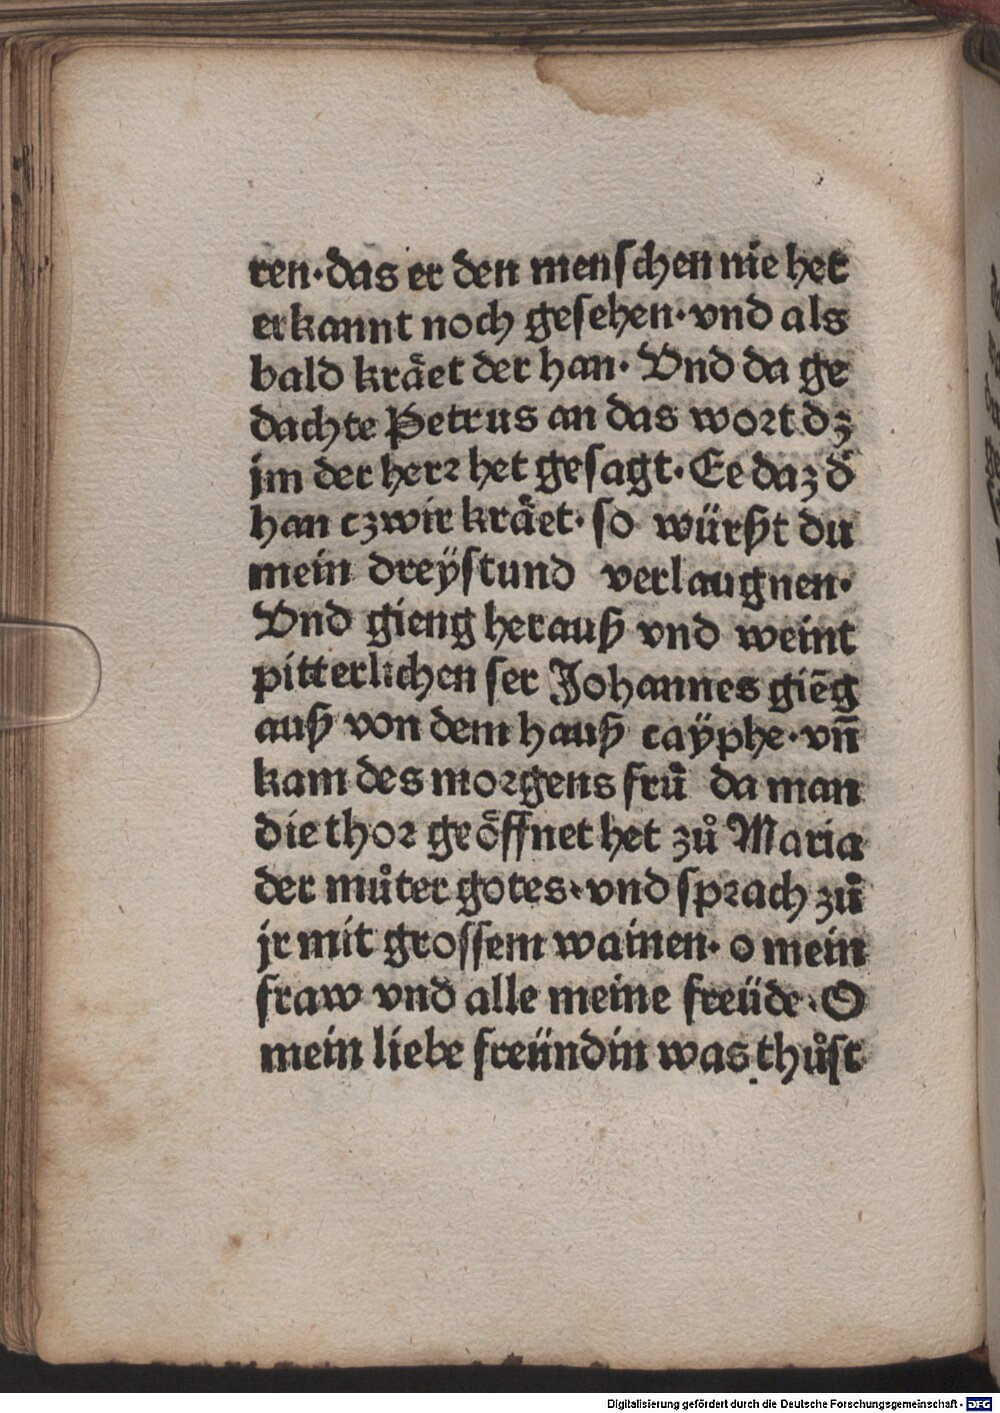 ren·das er den menschen nie het
erkannt noch gesehen·vnd als
bald kräet der han· Vnd da ge
dachte Petrus an das wort dz
jm der herr het gesagt· Ee daz d̕
han czwir kräet· so würßt du
mein dreÿstund verlaugnen·
Vnd gieng herauß vnd weint
pitterlichen ser Johannes giēg
auß von dem hauß cayphe·vn̄
kam des morgens frů da man
die thor geöffnet het zů Maria
der můter gotes·vnd sprach zů
jr mit grossem wainen· o mein
fraw vnd alle meine freüde·O
mein liebe freündin was thůst
Digitalisierung gefördert durch die Deutsche Forschungsgemeinschaft - DFG